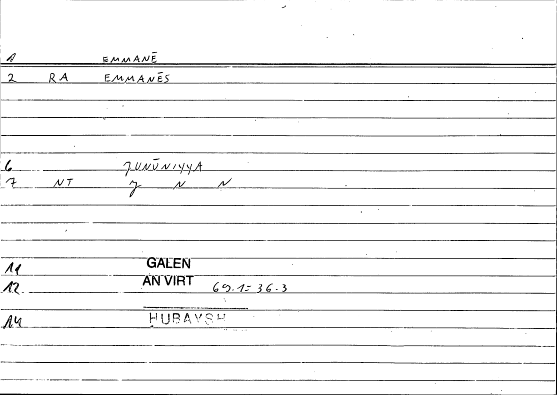 1 EMMANĒ
2 RA EMMANĒS
6 JUNŪNIYYA
7 NT J N N
11 GALEN
12 AN VIRT 69.1=36.3
14 HUBAYSH